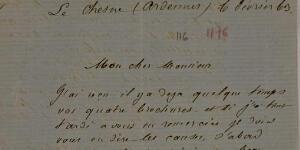 Le Chesne (Ardennes) 6 Février 63
116 1176
Mon cher Monsieur
J'ai reçu il y a déjà quelque temps
vos quatre brochures et si j'ai tant
tardé à vous en remercier je dois
vous en dire les causes, d'abord